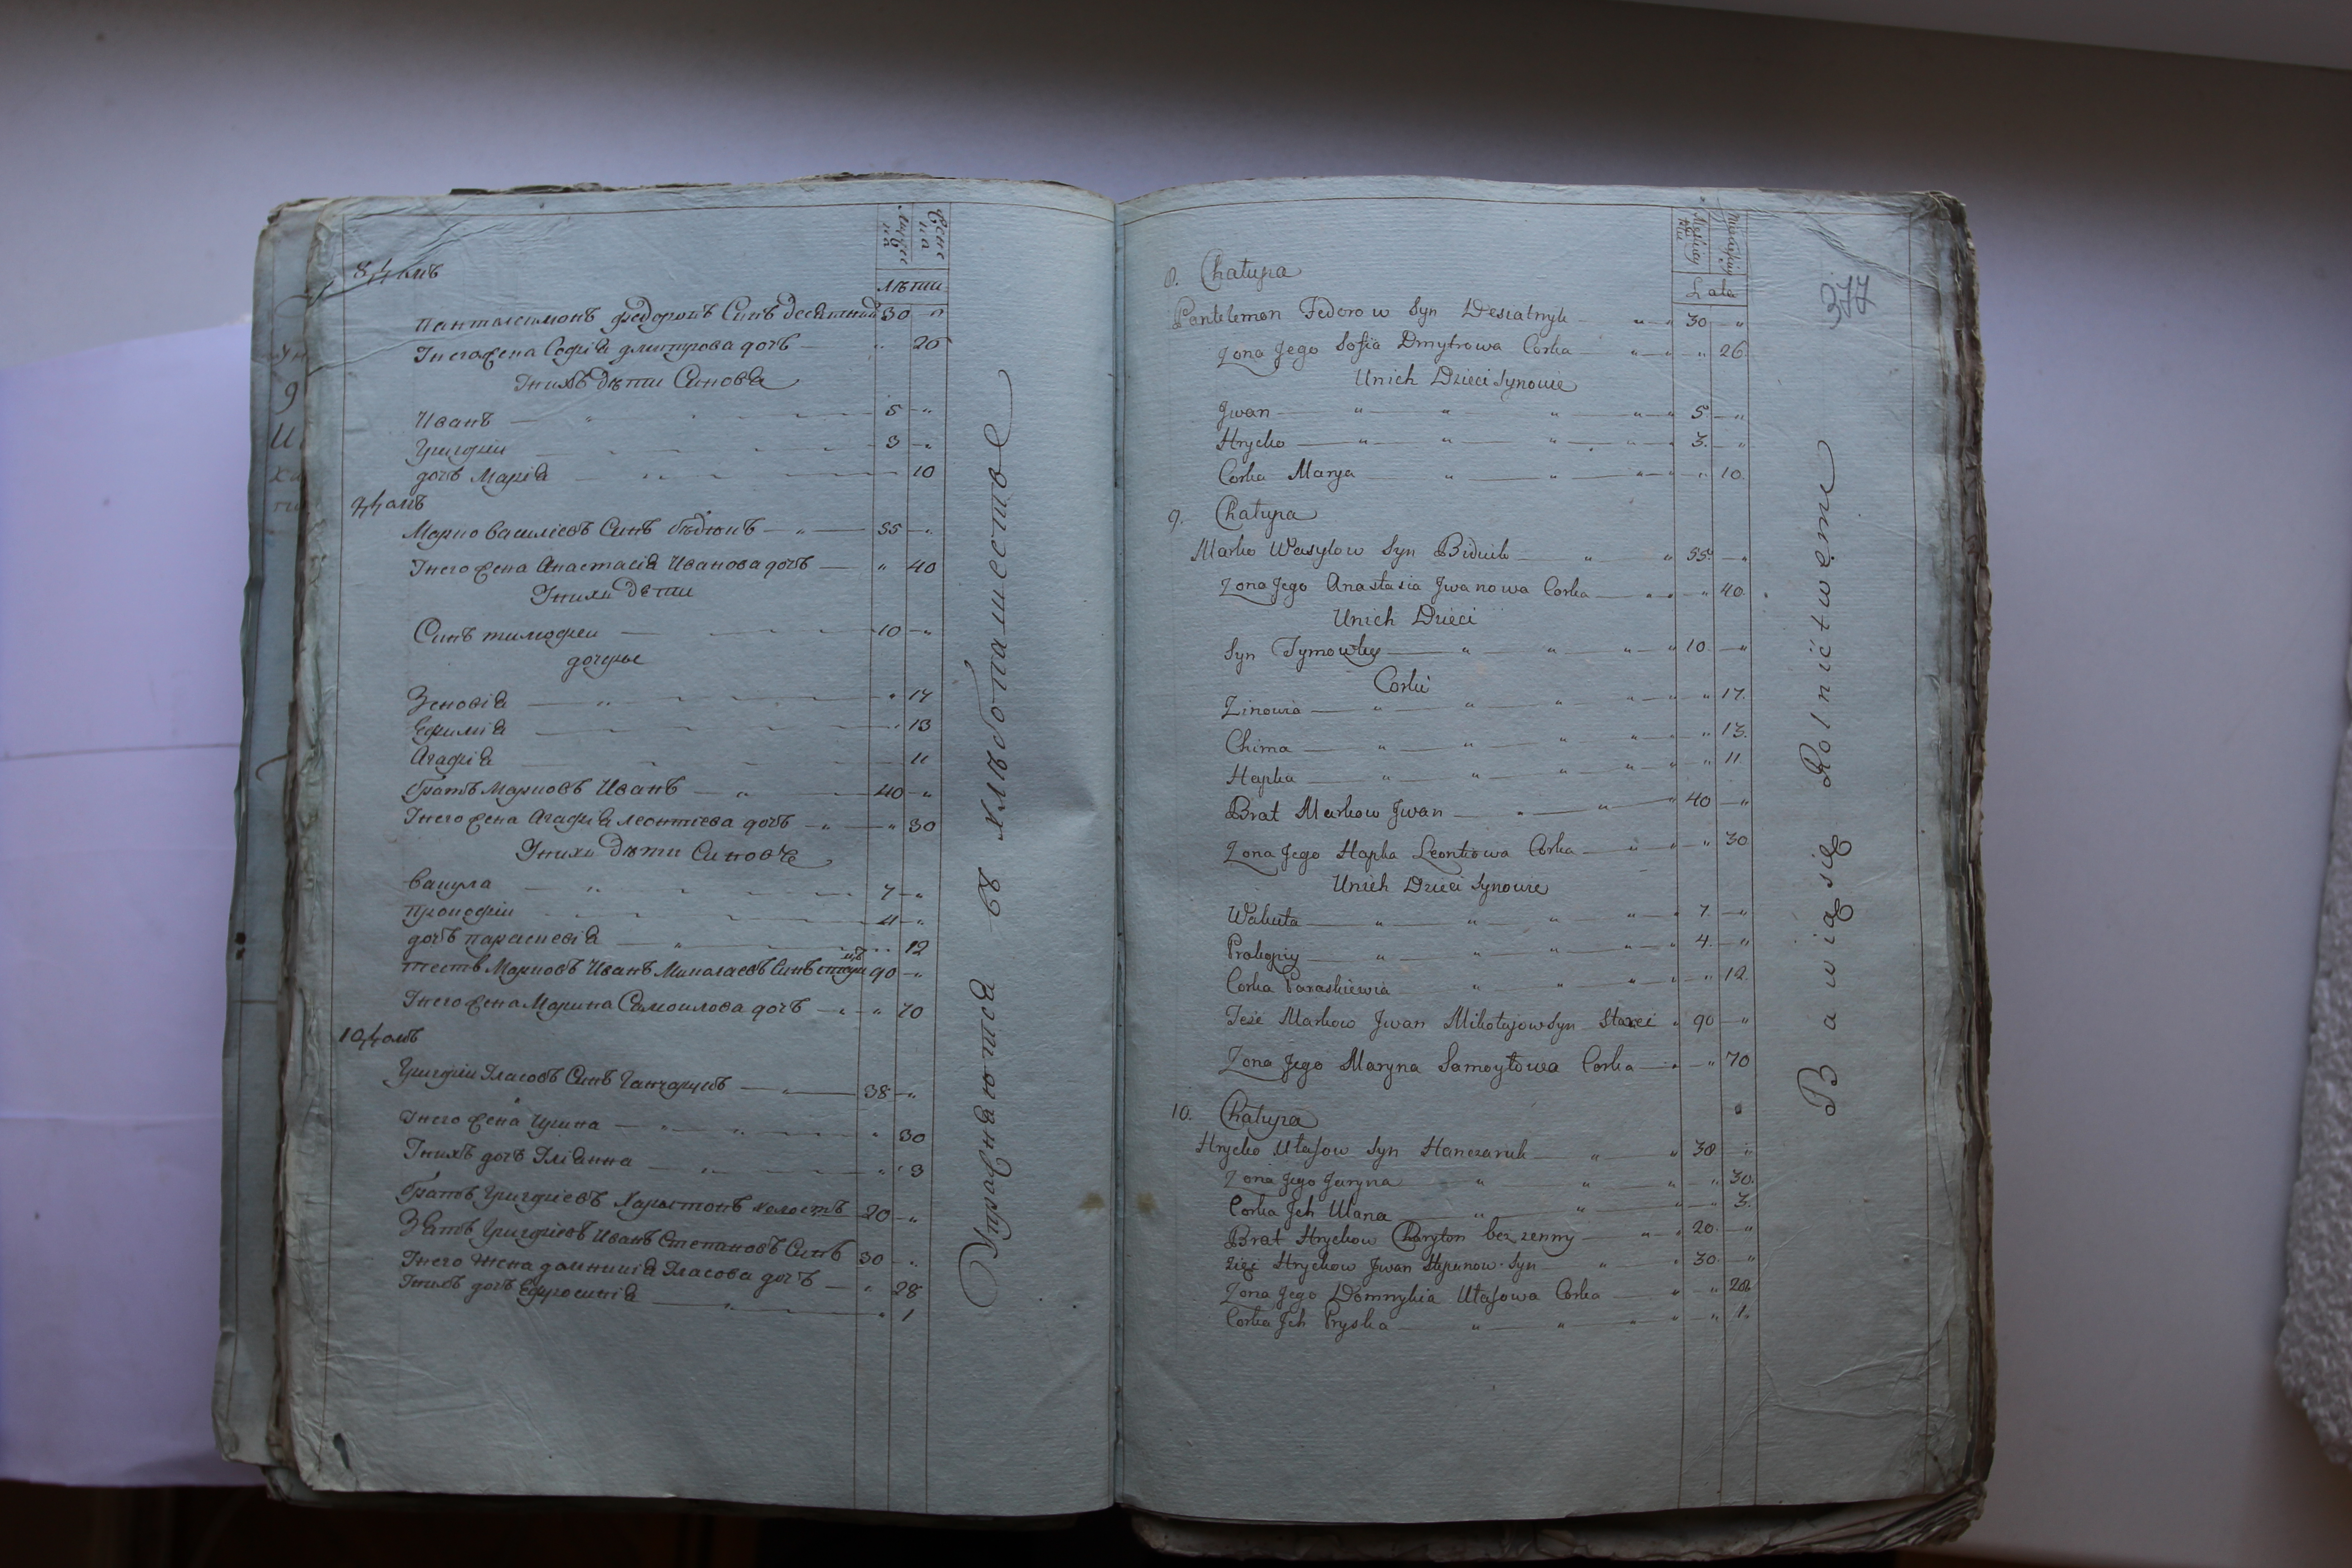 Мужес
ка
Женс
ка
лѣта
8, домъ
Пантелеимонъ федоровъ Синъ десятникъ 30 "
Унего жена Софія дмитрова дочъ " 26
Унихъ дѣти Синовя
Иванъ 5 "
Григорій 3 "
дочъ Марія " 10
9, домъ
Марко Василіевъ Синъ бѣдюкъ 55 "
Унего жена Анастасія Иванова дочъ " 40
Унихъ дѣти
Синъ тимофеи 10 "
дочерье
Зеновія " 17
Ефимія " 13
Агафія " 11
братъ Марковъ Иванъ 40 "
Унего жена Агафія леонтіева дочъ " 30
Унихъ дѣти Синовя
Вакула 7 "
Прокофіи 4 "
дочъ параскевія " 12
тесть Марковъ Иванъ Миколаевъ Синъ 90 "
Унего жена Марина Самоилова дочъ " 70
10, домъ
Григоріи Уласовъ Синъ Ганчарукъ 38 "
Унего жена Ирина " 30
Унихъ дочъ Уліянна " 3
братъ Григоріевъ Харитонъ холостъ 20 "
Зять Григоріевъ Иванъ Степановъ Синъ 30 "
Унего жена домникія Уласова дочъ " 28
Унихъ дочъ Ефросинія " 1
Упражняются въ хлѣбопашестве
377
Lata
8. Chałupa
Pantelemon Fedorow Syn Desiatnyk 30 "
Zona Jego Sofia Dmytrowa Corka " 26
Unich Dzieci Synowie
Jwan 5 "
Hrycko 3. "
Corka Marya " 10.
9. Chałupa
Marko Wasylow Syn Biduik 55. "
Zona Jego Anastasia Jwanowa Corka " 40.
Unich Dzieci
Syn Tymowky 10. "
Corki
Zinowia " 17.
Chima " 13.
Hapka " 11
Brat Markow Jwan 40 "
Zona Jego Hapka Leontiowa Corka " 30
Unich Dzieci Synowie
Wakuła 7. "
Prokopiy 4. "
Corka Paraskiewia " 12.
Teść Markow Jwan Mikołajow Syn Starci 90 "
Zona Jego Maryna Samoyłowa Corka " 70
10. Chałupa
Hrycko Ułasow Syn Hanczaruk 38 "
Zona Jego Jaryna " 30.
Corka Jch Ulana " 3.
Brat Hryckow Charyton bezzenny 20. "
Zięć Hryckow Jwan Stepanow Syn 30. "
Zona Jego Domnykia Ułasowa Corka " 28
Corka Jch Pryska " 1.
Bawią się Rolnictwem